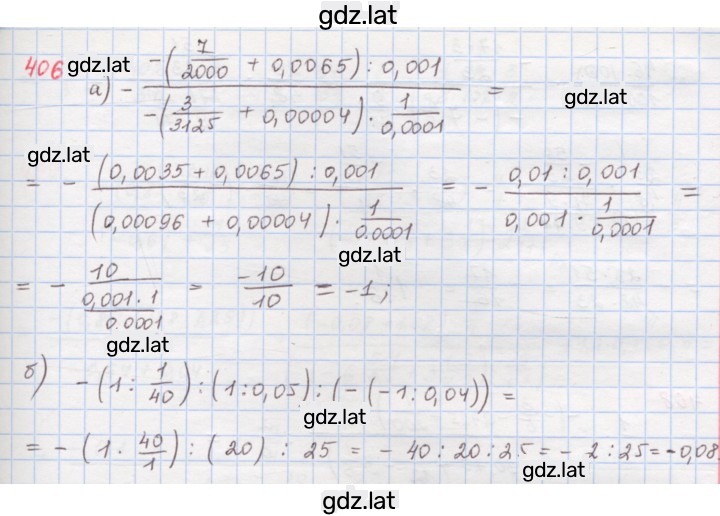 gdz.lat
406 gdz.lat
а) - (-(7/2000 + 0,0065) : 0,001) / (-(3/3125 + 0,00004) · 1/0,0001) = gdz.lat
gdz.lat
= - ((0,0035 + 0,0065) : 0,001) / ((0,00096 + 0,00004) · 1/0.0001) = - (0,01 : 0,001) / (0,001 · 1/0,0001) =
gdz.lat
= - 10 / (0,001 · 1 / 0.0001) = -10/10 = -1;
gdz.lat
б) -(1 : 1/40) : (1 : 0,05) : (-(-1 : 0,04)) =
gdz.lat
= - (1 · 40/1) : (20) : 25 = - 40 : 20 : 25 = - 2 : 25 = -0,08.
gdz.lat
gdz.lat